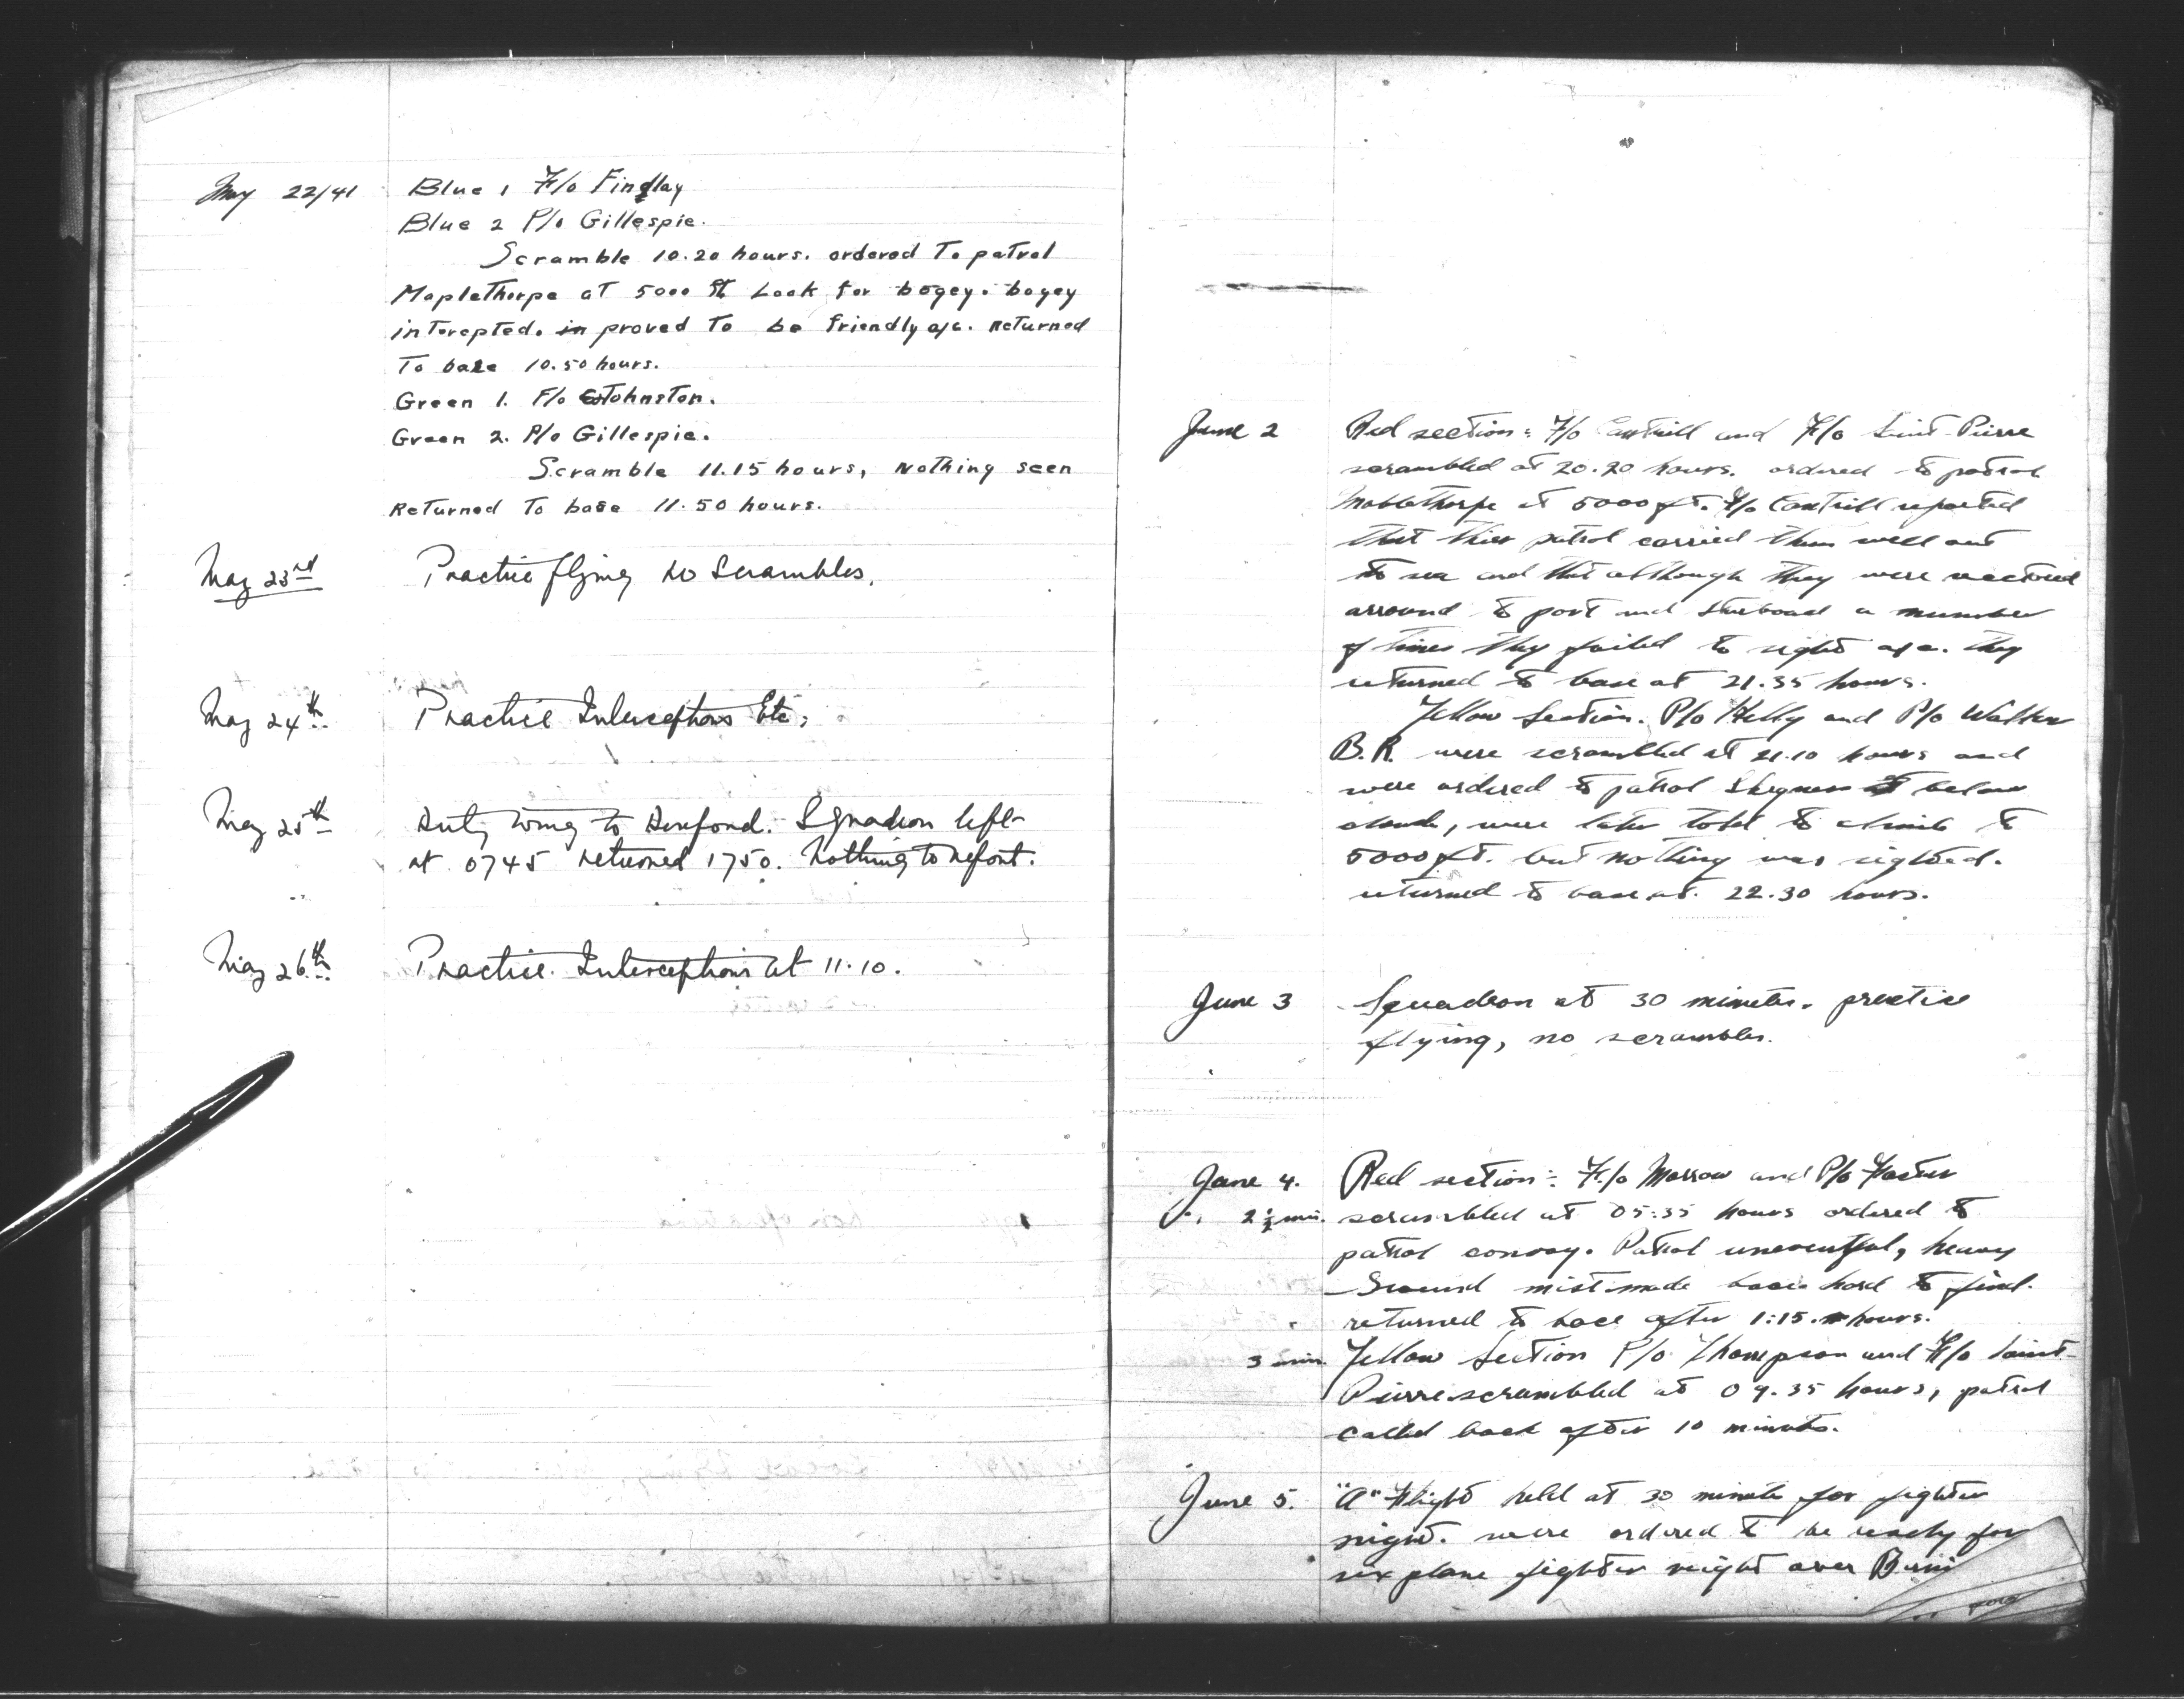 May 22/41 Blue 1 F/o Findlay
Blue 2 P/o Gillespie.
Scramble 10.20 hours. ordered To patrol
Maplethorpe at 5000 ft Look for bogey. bogey
interepted. in proved To be friendly a/c. Returned
To base 10.50 hours.
Green 1. F/o Johnston.
Green 2. P/o Gillespie.
Scramble 11.15 hours, Nothing seen
Returned To base 11.50 hours.
May 23rd Practice flying no Scrambles.
May 24th Practice Interceptions Etc.
May 25th Duty Wing to . Squadron left
at 0745 returned 1750. Nothing to report.
May 26th Practice Interceptions at 11.10.
June 2 Red section: F/o Cantrill and F/o Saint-Pierre
scrambled at 20.20 hours. ordered to patrol
Mablethorpe at 5000 ft. F/o Cantrill reported
that thier patrol carried them well out
to sea and that although they were vectored
arround to port and starboard a number
of times they failed to sight a/c. they
returned to base at 21.35 hours.
Yellow Section. P/o Kelly and P/o Walker
B.R. were scrambled at 21.10 hours and
were ordered to patrol Skegness below
cloud, were later told to climb to
5000 ft. but nothing was sighted.
returned to base at 22.30 hours.
June 3 Squadron at 30 minutes. practice
flying, no scrambles.
June 4. Red section: F/o Morrow and P/o Foster
2½ min. scrambled at 05:35 hours ordered to
patrol convoy. Patrol uneventful, heavy
Ground mist made base hard to find.
returned to base after 1:15 hours.
3 min. Yellow Section P/o Thompson and F/o Saint-
Pierre scrambled at 09.35 hours, patrol
called back after 10 minutes.
June 5. "A" Flight held at 30 minute for fighter
night. were ordered to be ready for
six plane fighter night over